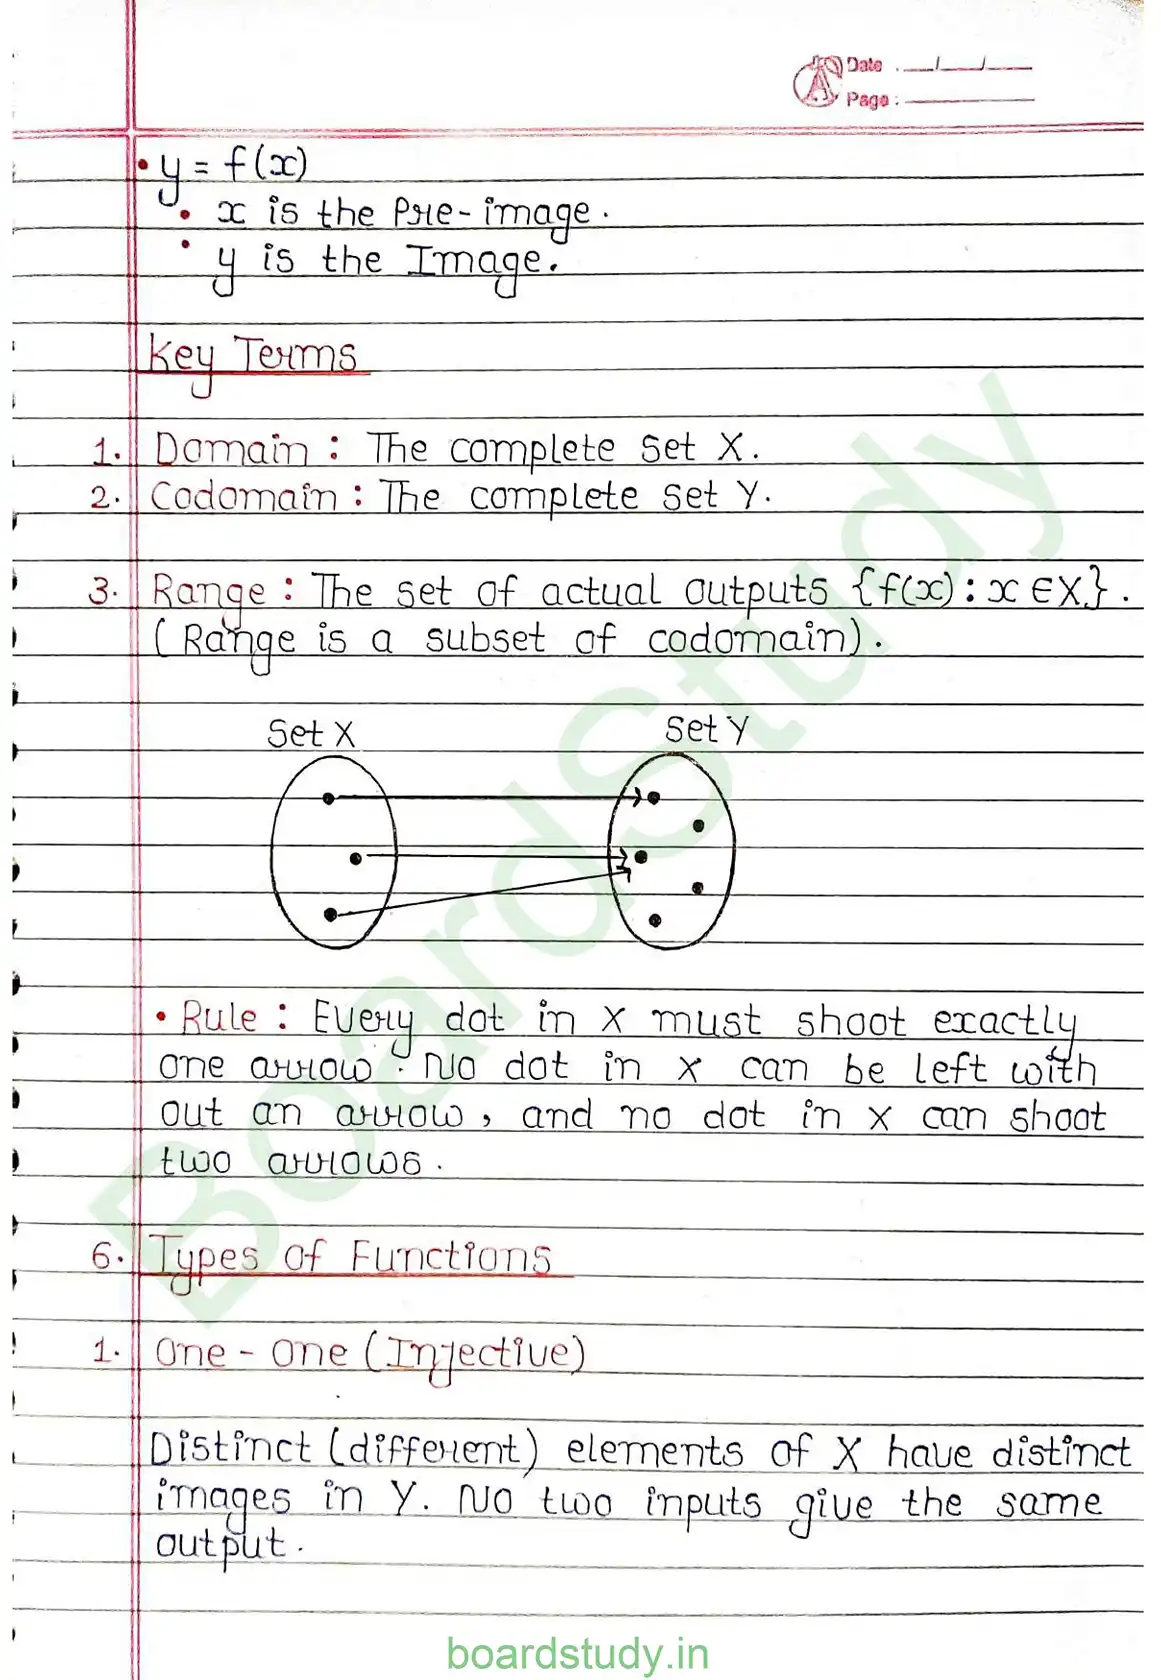 Date : __/__/__
Page :
• y = f(x)
• x is the Pre-image.
• y is the Image.
Key Terms
1. Domain : The complete set X.
2. Codomain : The complete set Y.
3. Range : The set of actual outputs {f(x) : x ∈ X}.
(Range is a subset of codomain).
Set X
Set Y
• Rule : Every dot in X must shoot exactly
one arrow. No dot in X can be left with
out an arrow, and no dot in X can shoot
two arrows.
6. Types of Functions
1. One - One (Injective)
Distinct (different) elements of X have distinct
images in Y. No two inputs give the same
output.
BoardStudy
boardstudy.in